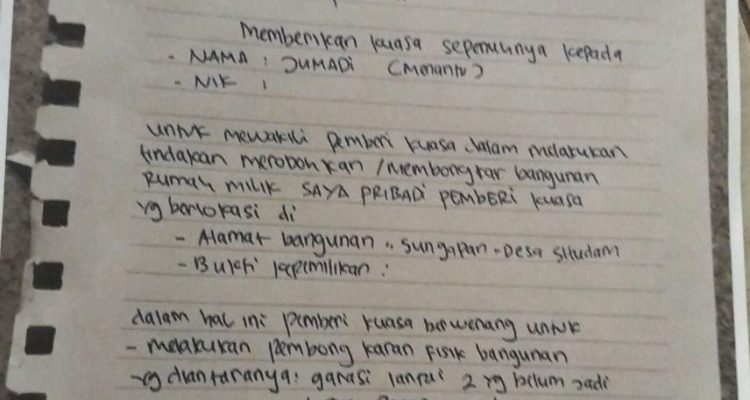 Memberikan kuasa sepenuhnya kepada
- NAMA : JUMADI (Menantu)
- NIK :
untuk mewakili pemberi kuasa dalam melakukan
tindakan merobohkan / Membongkar bangunan
Rumah MILIK SAYA PRIBADI PEMBERI kuasa
yg berlokasi di
- Alamat bangunan : Sungapan - Desa Situdam
- Bukti kepemilikan :
dalam hal ini pemberi kuasa berwenang untuk
- melakukan pembongkaran fisik bangunan
- yg diantaranya : garasi lantai 2 yg belum jadi